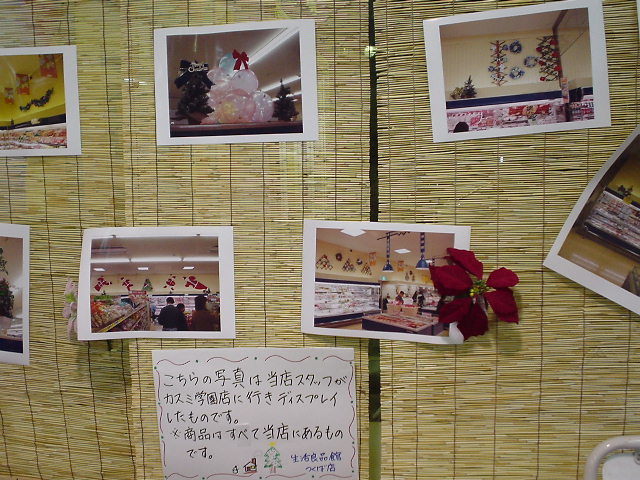 こちらの写真は当店スタッフが
カスミ学園店に行きディスプレイ
したものです。
※商品はすべて当店にあるもの
です。
生活良品館
つくば店